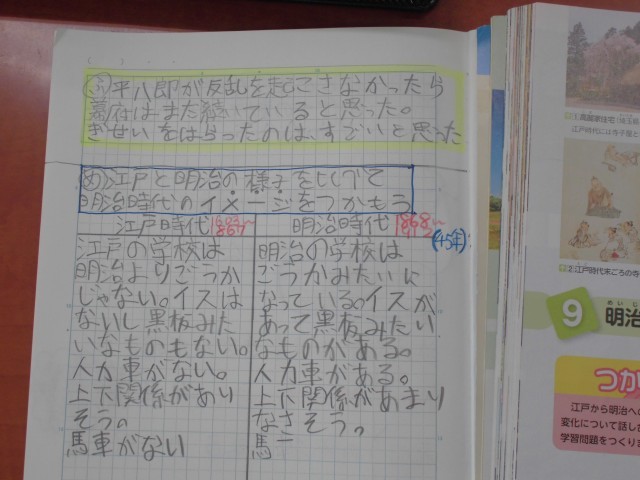 平八郎が反乱を起こさなかったら
幕府はまだ続いていると思った。
ぎせいをはらったのは、すごいと思った
め江戸と明治の様子を比べて
明治時代のイメージをつかもう
江戸時代 1603～
1867
明治時代 1868～
(45年)
江戸の学校は
明治よりごうか
じゃない。イスは
ないし黒板みた
いなものもない。
人力車がない。
上下関係があり
そう。
馬車がない
明治の学校は
ごうかみたいに
なっている。イスが
あって黒板みたい
なものがある。
人力車がある。
上下関係があまり
なさそう。
馬
9 明治
めいじ
つか
江戸から明治への
変化について話し
学習問題をつくりま
江戸時代には寺子屋と
2 江戸時代末ごろの寺